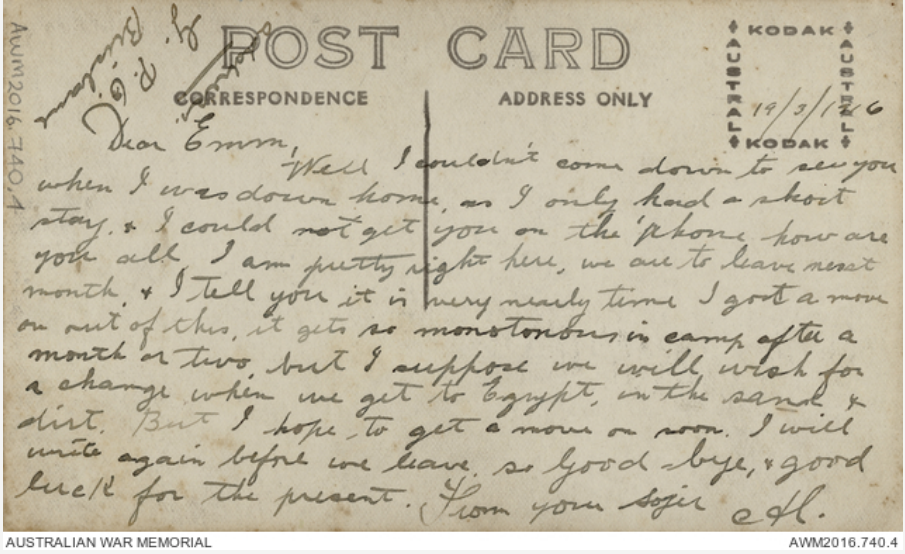 AWM2016.740.4
P.O.
Brisbane
POST CARD
CORRESPONDENCE
ADDRESS ONLY
KODAK
AUSTRAL
AUSTRAL
KODAK
19/3/1916
Dear Emm,
Well I couldn't come down to see you
when I was down home, as I only had a short
stay, & I could not get you on the 'phone, how are
you all, I am pretty right here, we are to leave next
month, & I tell you it is very nearly time I got a move
on out of this, it gets so monotonous in camp after a
month or two, but I suppose we will wish for
a change when we get to Egypt, in the sand &
dirt. But I hope to get a move on soon. I will
write again before we leave, so Good-bye, & good
luck for the present. From your sojer
AUSTRALIAN WAR MEMORIAL
AWM2016.740.4